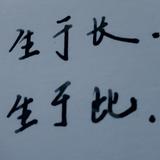 生于长.
生于比.